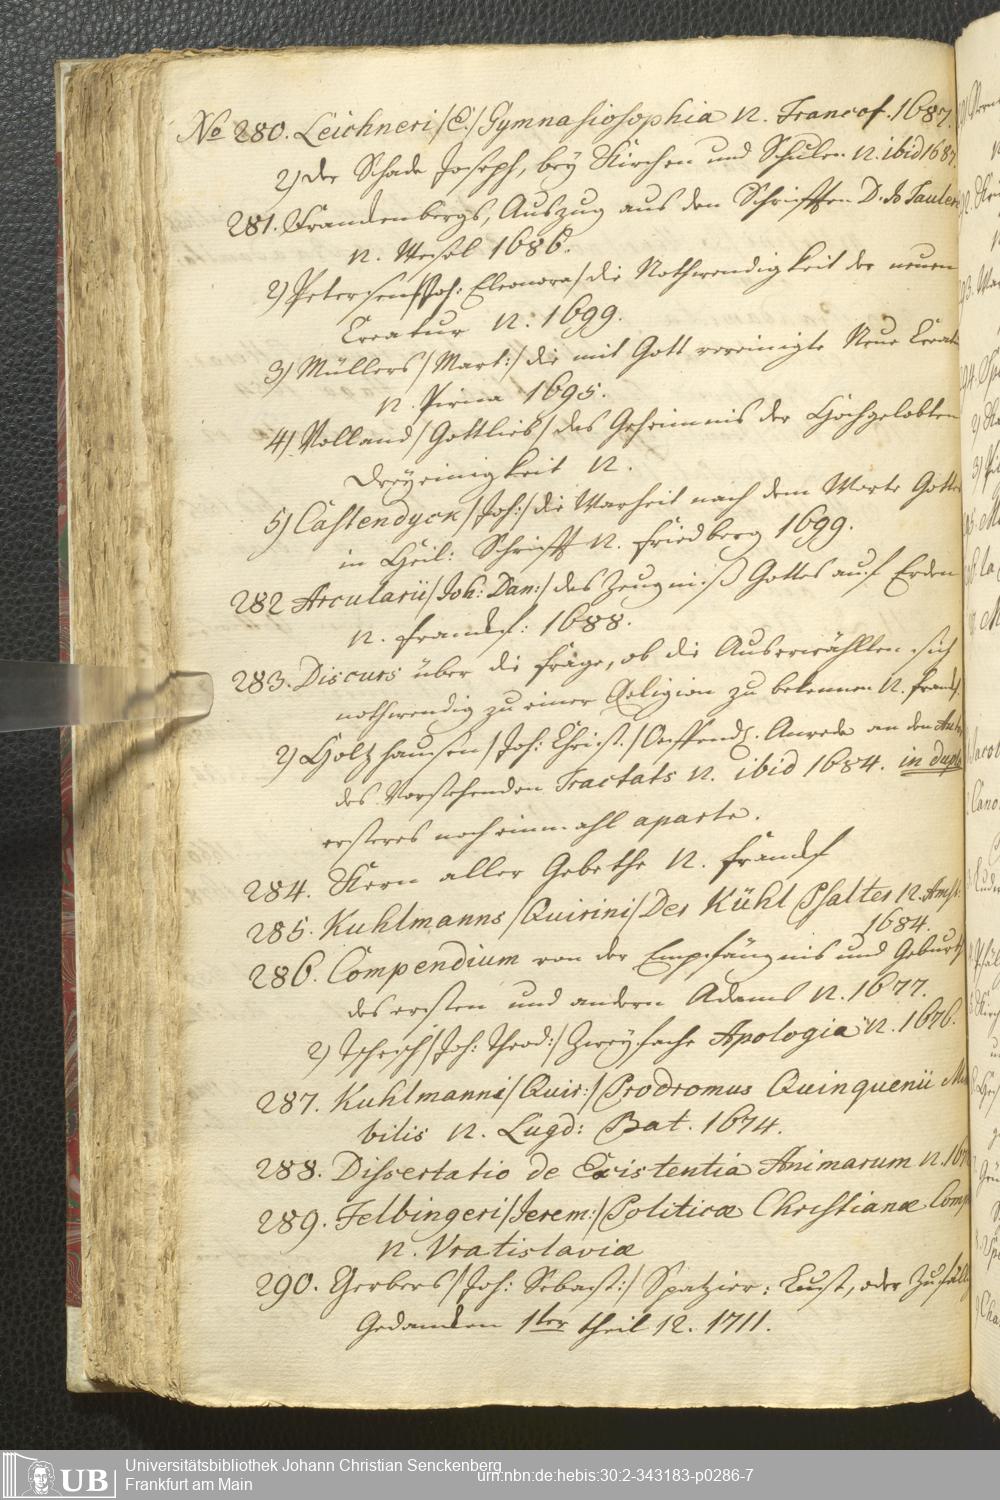 No 280. Leichneri /E./ Gymnasiosophia 12. Francof. 1687.
2) der Schade Joseph, bey Kirchen und Schulen 12. ibid 1687.
281. Auszug aus den Schrifften D. Jo Tauleri
12. Wesel 1686.
2) Petersen /Joh: Eleonora/ die Nothwendigkeit der neuen
Creatur 12. 1699.
3) Müllers /Mart:/ die mit Gott vereinigte Neue Creatu
12. Pirna 1695.
4) Volland /Gottlieb/ das Geheimnis der Hochgelobten
Dreyeinigkeit 12.
5) Castendyck /Joh:/ die Warheit nach dem Worte Gottes
in Heil: Schrifft 12. Friedberg 1699.
282 Arcularii /Joh: Dan:/ das Zeugniß Gottes auf Erden
12. Franckf: 1688.
283. Discurs über die Frage, ob die Auserwählten sich
nothwendig zu einer Religion zu bekennen 12. Franckf.
2) Holtzhausen /Joh: Christ./ Anrede an den
des Vorstehenden Tractats 12. ibid 1684. in duplo
ersteres noch einmahl aparte.
284. Kern aller Gebethe 12. Franckf
285. Kuhlmanns /Quirini/ Der Kühl Psalter 12. Amst.
1684.
286. Compendium von der Empfängnis und Geburth
des ersten und andern Adams 12. 1677.
2) Tschesch /Joh: Theod:/ Zweyfache Apologia 12. 1676.
287. Kuhlmanni /Quir:/ Prodromus Quinquenii Mi
bilis 12. Lugd: Bat. 1674.
288. Dissertatio de Existentia Animarum 12. 167
289. Felbingeri /Jerem:/ Politicæ Christianæ Comp
12. Vratislaviæ
290. Gerbers /Joh: Sebast:/ Spatzier: Lust, oder Zufäll
Gedancken 1ter theil 12. 1711.
Universitätsbibliothek Johann Christian Senckenberg
Frankfurt am Main
UB
urn:nbn:de:hebis:30:2-343183-p0286-7